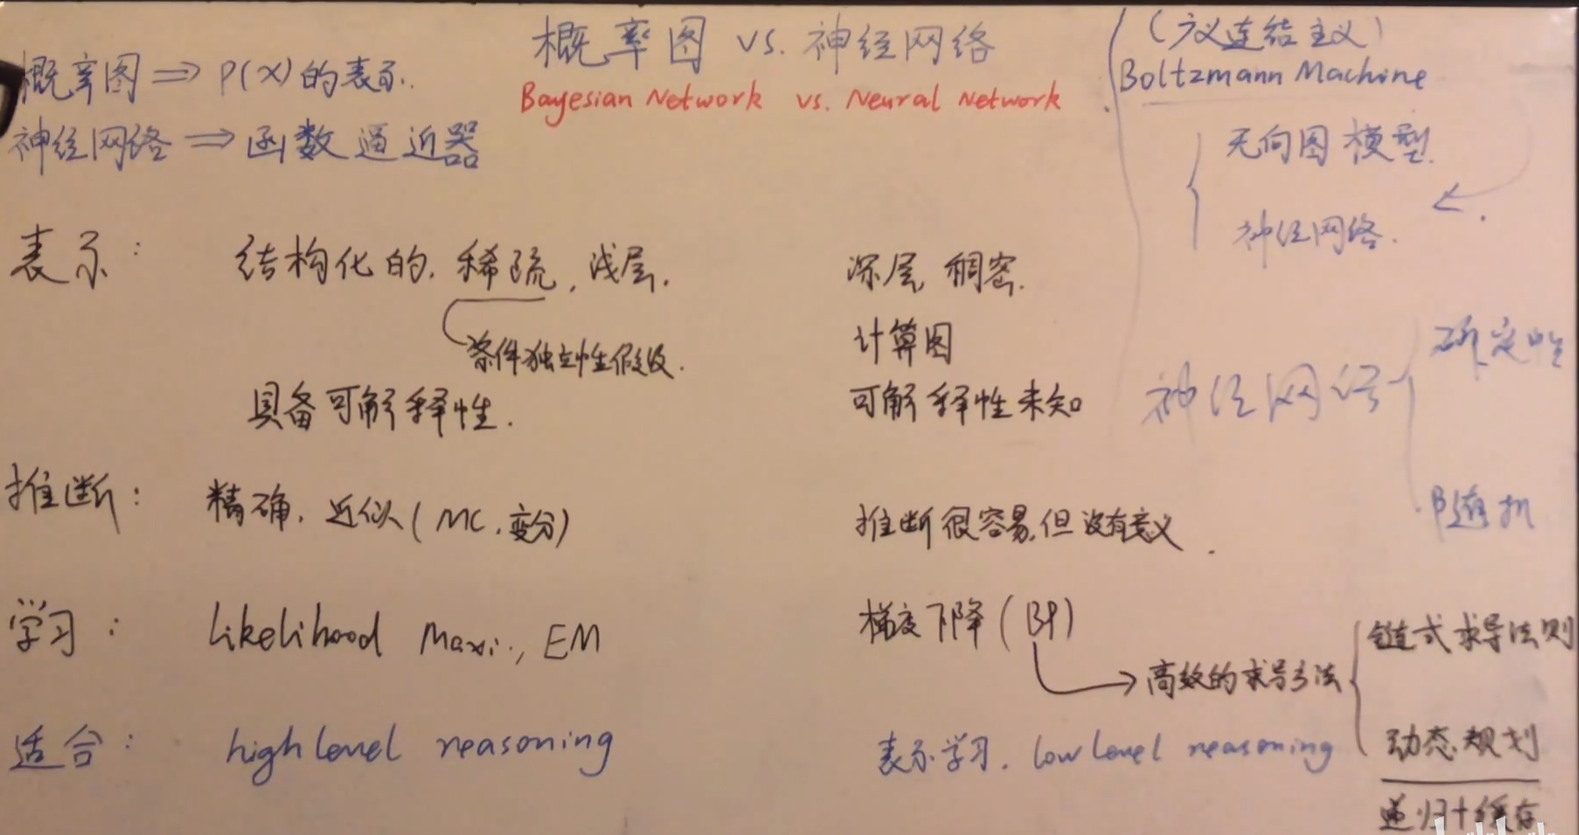 概率图 vs. 神经网络
Bayesian Network vs. Neural Network
概率图 ⇒ P(X) 的表示.
神经网络 ⇒ 函数逼近器
(广义连结主义)
Boltzmann Machine
无向图模型.
神经网络.
表示: 结构化的. 稀疏, 浅层.
条件独立性假设.
具备可解释性.
深层, 稠密.
计算图
可解释性未知
神经网络
确定性
随机
推断: 精确, 近似 (MC, 变分)
推断很容易, 但没有意义.
学习: likelihood Maxi., EM
梯度下降 (BP)
→ 高效的求导方法
链式求导法则
动态规划
递归+缓存
适合: high level reasoning
表示学习. low level reasoning